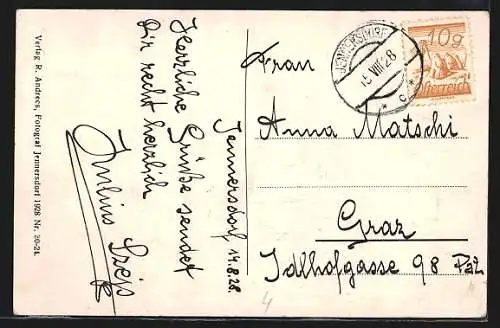 Verlag R. Andrees, Fotograf Jennersdorf 1928 Nr. 30-24.
Jennersdorf, 14.8.28.
Herzliche Grüße sendet
Dir recht herzlich
Julius
JENNERSDORF
15 VIII 28
* c *
10g
Österreich
Frau
Anna Matschi
Graz
Idlhofgasse 98
4